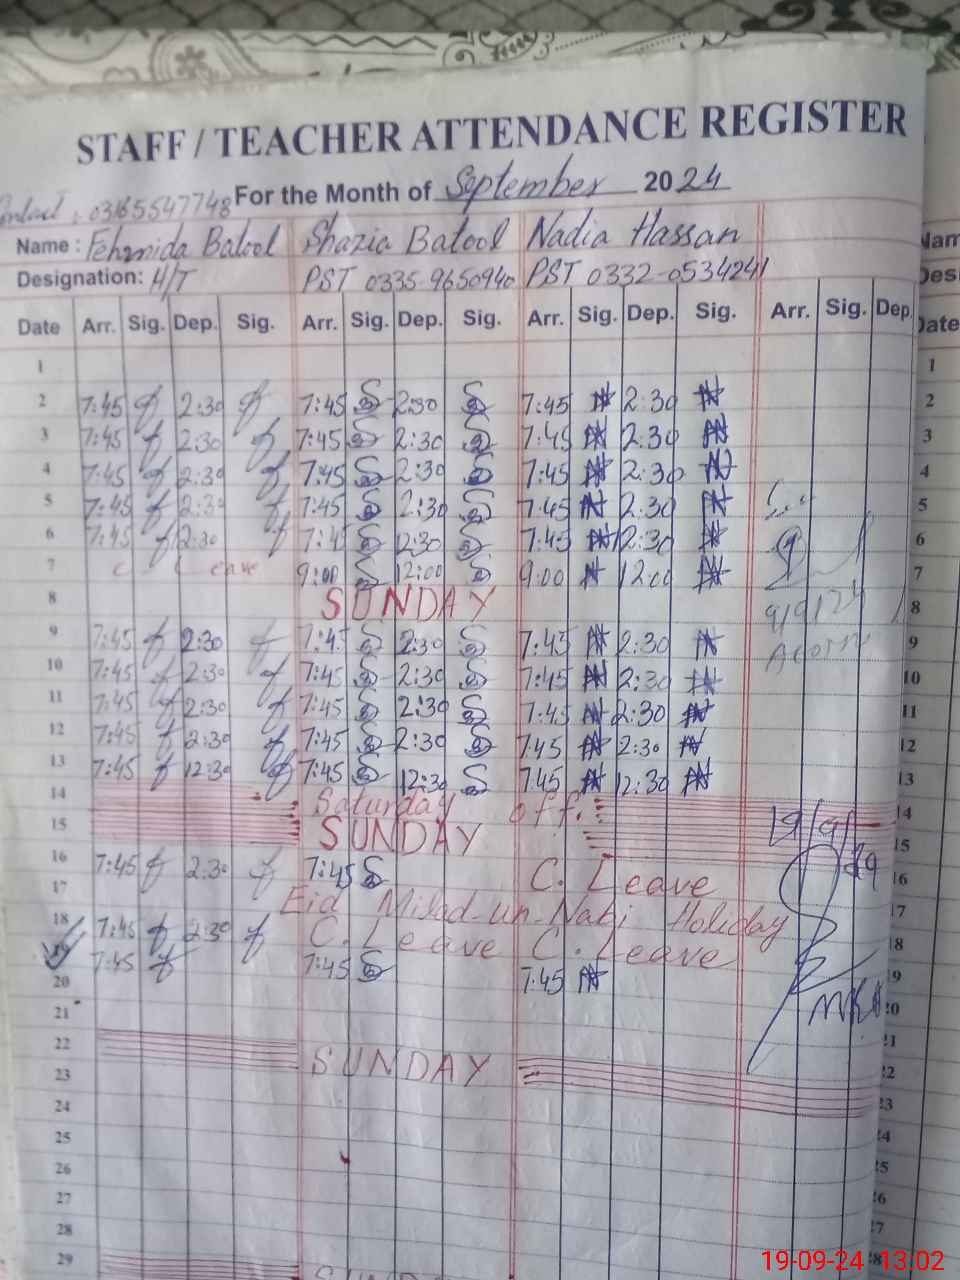 STAFF / TEACHER ATTENDANCE REGISTER
For the Month of September 2024
Contact : 03165547748
Name : Fehmida Batool Shazia Batool Nadia Hassan
Designation: H/T PST 0335-9650940 PST 0332-0534241
Date Arr. Sig. Dep. Sig. Arr. Sig. Dep. Sig. Arr. Sig. Dep. Sig. Arr. Sig. Dep. Date
1 1
2 7:45 2:30 7:45 2:30 7:45 2:30 2
3 7:45 2:30 7:45 2:30 7:45 2:30 3
4 7:45 2:30 7:45 2:30 7:45 2:30 4
5 7:45 2:30 7:45 2:30 7:45 2:30 5
6 7:45 2:30 7:4 12:30 7:45 12:30 6
7 C Leave 9:00 12:00 9:00 12:00 7
8 SUNDAY 9/9/24 8
9 7:45 2:30 7:45 2:30 7:45 2:30 9
10 7:45 2:30 7:45 2:30 7:45 2:30 10
11 7:45 2:30 7:45 2:30 7:45 2:30 11
12 7:45 2:30 7:45 2:30 7:45 2:30 12
13 7:45 12:30 7:45 12:30 7:45 12:30 13
14 Saturday off. 14
15 SUNDAY 19/9/ 15
16 7:45 2:30 7:45 C. Leave 16
17 Eid Milad-un-Nabi Holiday 17
18 7:45 2:30 C. Leave C. Leave 18
19 7:45 7:45 7:45 19
20 20
21 21
22 SUNDAY 22
23 23
24 24
25 25
26 26
27 27
28 28
29 SUNDAY
19-09-24 13:02